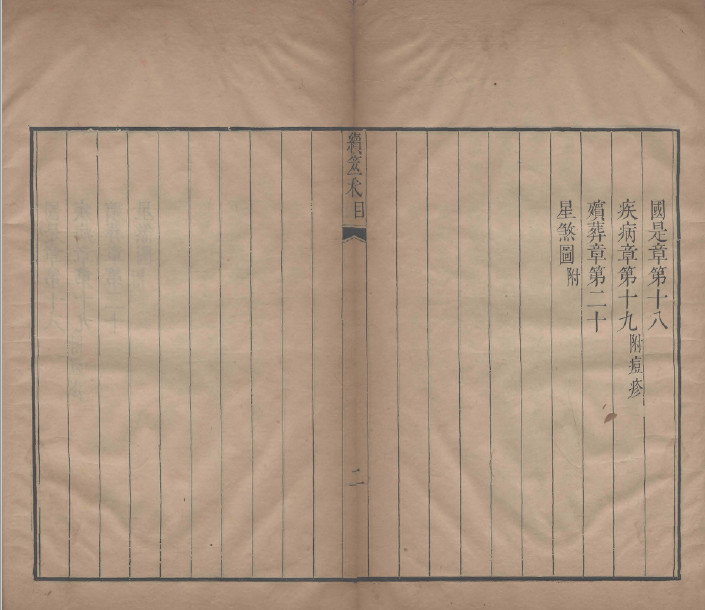 國是章第十八
疾病章第十九附痘疹
殯葬章第二十
星煞圖附
目
二